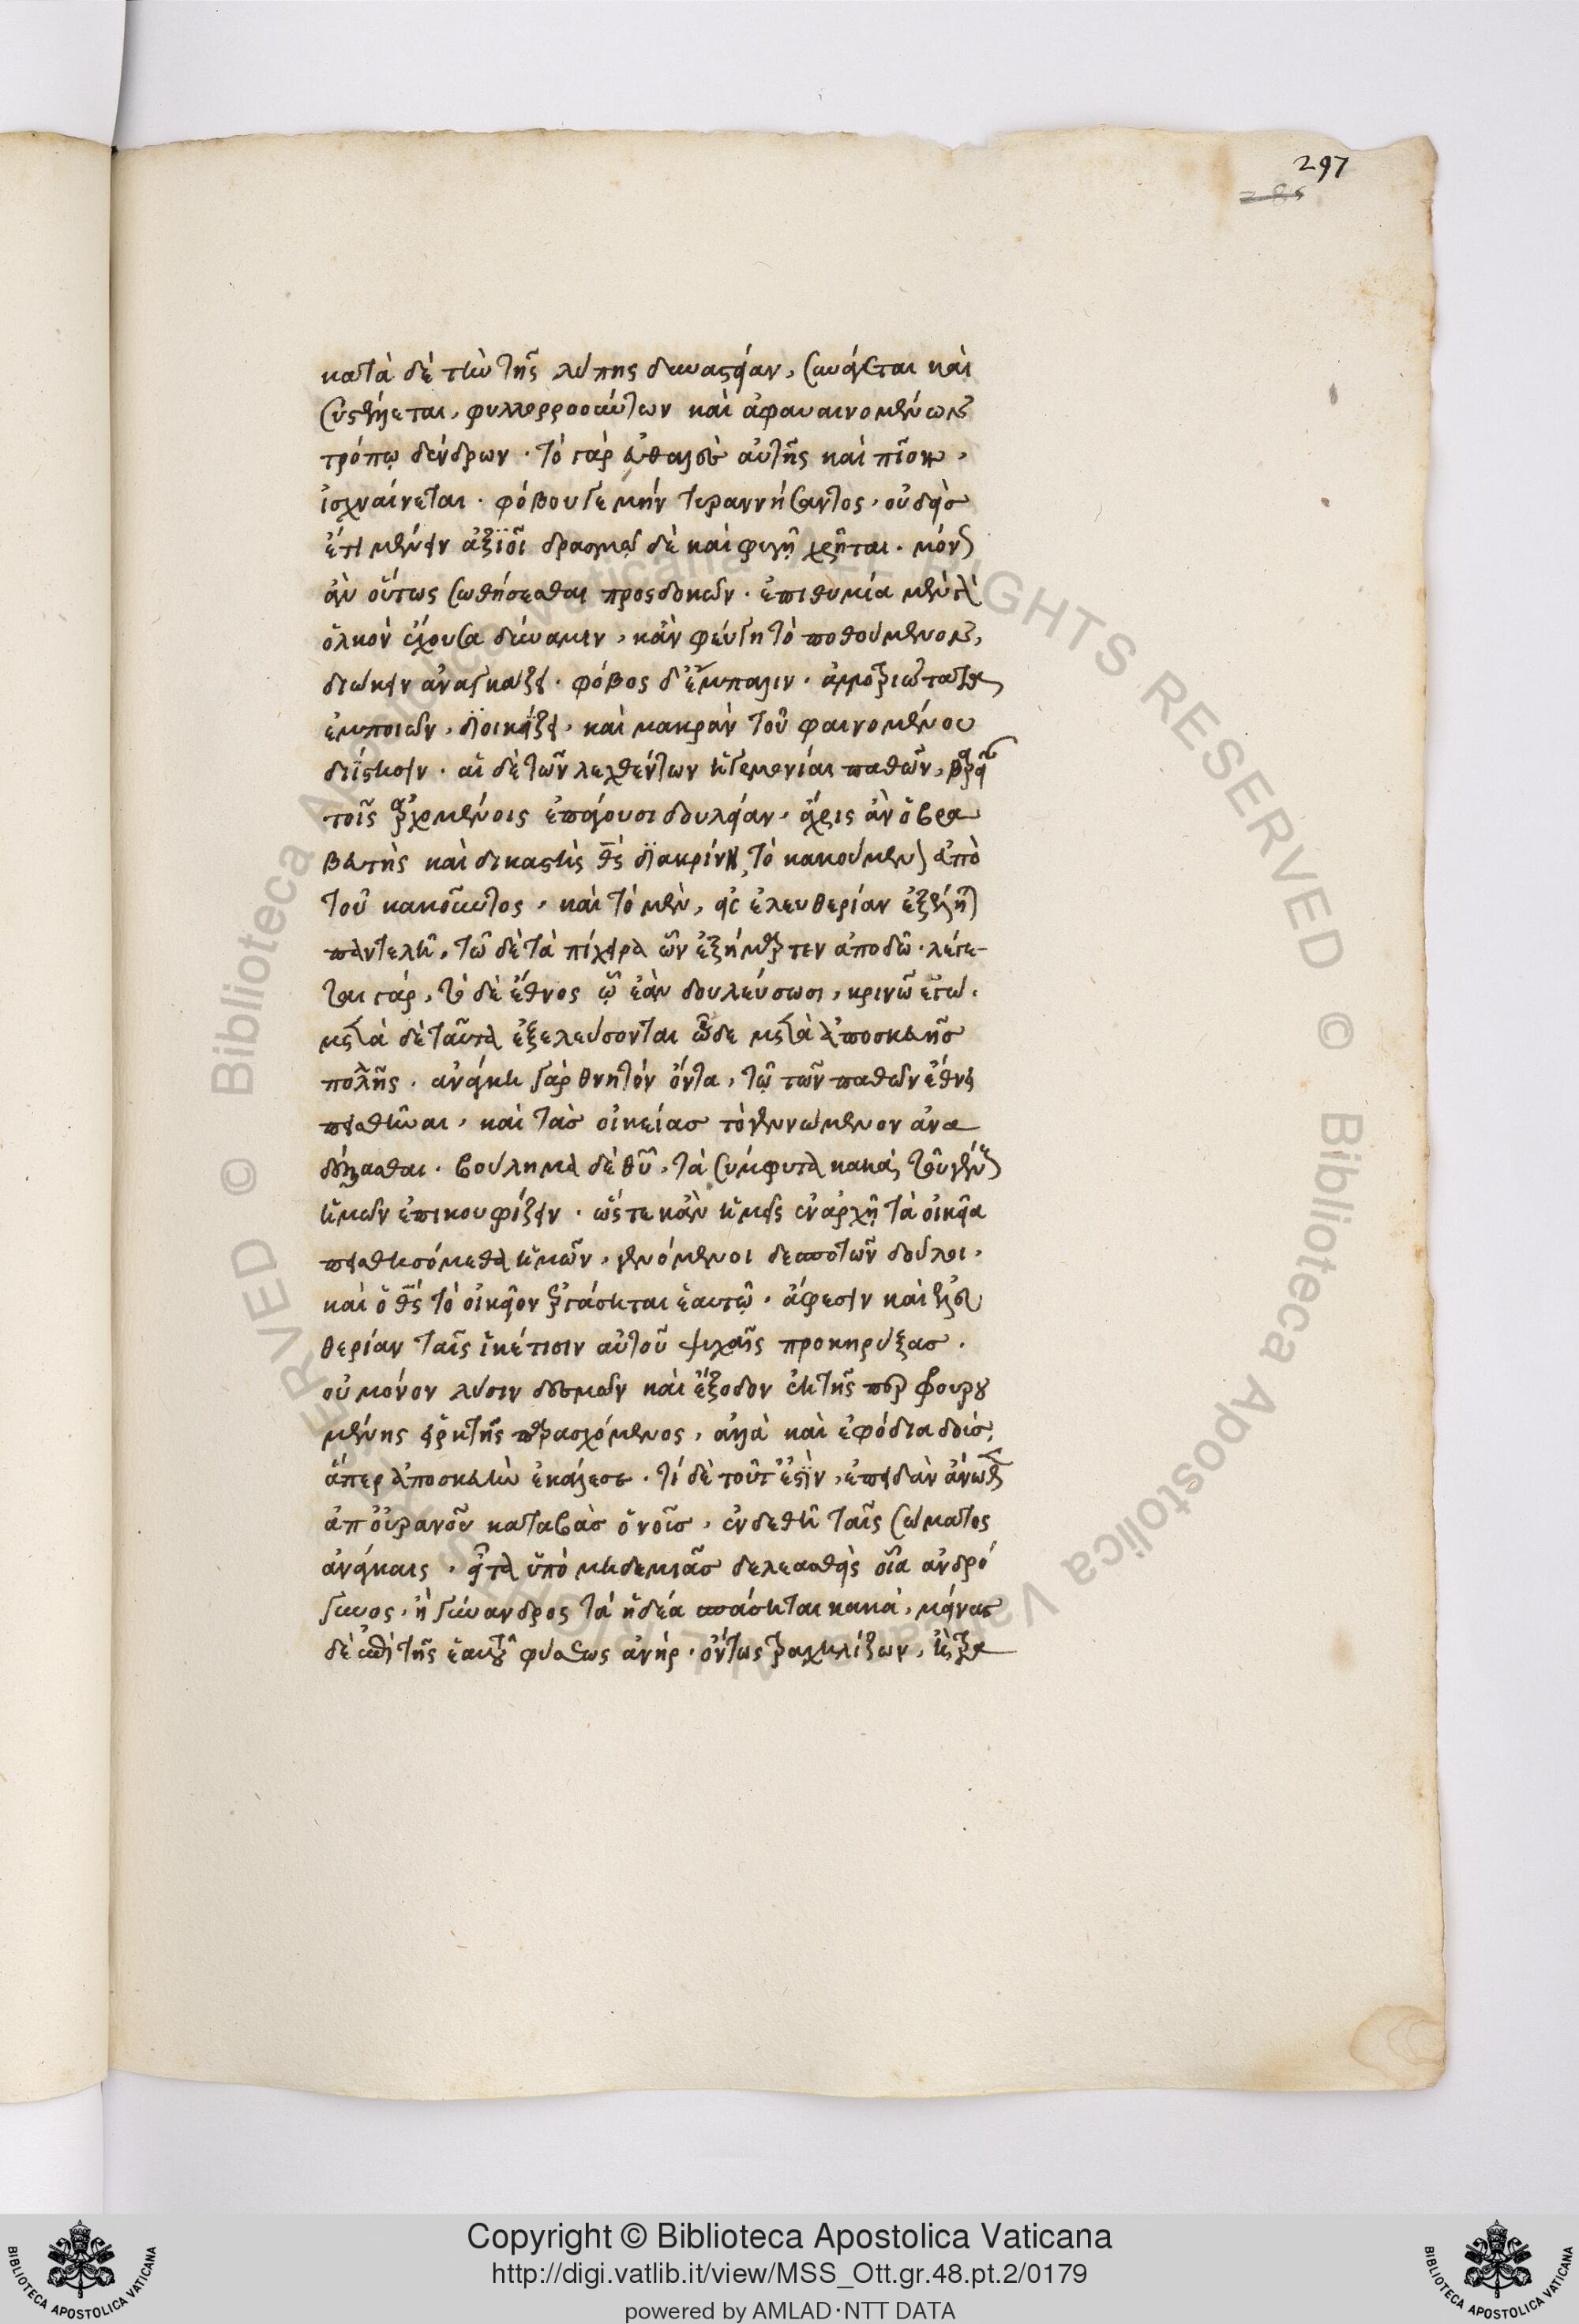 297
285
κατὰ δὲ τὴν τῆς λύπης δυναστείαν, συνάγεται καὶ
συστέλλεται, φυλλορροούντων καὶ ἀφαυαινομένων
τρόπῳ δένδρων · τὸ γὰρ εὐθαλὲς αὐτῆς καὶ πῖον,
ἰσχναίνεται · φόβου γε μὴν τυραννήσαντος, οὐδεὶς
ἔτι μένειν ἀξιοῖ δρασμῷ δὲ καὶ φυγῇ χρῆται · μόνως
ἂν οὕτως σωθήσεσθαι προσδοκῶν · ἐπιθυμία μὲν γὰρ
ὁλκὸν ἔχουσα δύναμιν, κἂν φεύγῃ τὸ ποθούμενον,
διώκειν ἀναγκάζει · φόβος δ' ἔμπαλιν · ἀλλοτριώτατα
ἐμποιῶν, διοικίζει, καὶ μακρὰν τοῦ φαινομένου
διΐστησιν · αἱ δὲ τῶν λεχθέντων ἡγεμονίαι παθῶν, βαρεῖαν
τοῖς ἀρχομένοις ἐπάγουσι δουλείαν, ἄχρις ἂν ὁ βρα
βευτὴς καὶ δικαστὴς θς διακρίνῃ τὸ κακούμενον ἀπὸ
τοῦ κακοῦντος, καὶ τὸ μὲν, εἰς ἐλευθερίαν ἐξέληται
παντελῆ, τῷ δὲ τὰ πίχειρα ὧν ἐξήμαρτεν ἀποδῷ · λέγε-
ται γάρ, τὸ δὲ ἔθνος ᾧ ἐὰν δουλεύσωσι, κρινῶ ἐγώ.
μετὰ δὲ ταῦτα ἐξελεύσονται ὧδε μετὰ ἀποσκευῆς
πολλῆς · ἀνάγκη γὰρ θνητὸν ὄντα, τῷ τῶν παθῶν ἔθνει
πιεσθῆναι, καὶ τὰς οἰκείας τὸ γεννώμενον ἀνα
δέξασθαι · βούλημα δὲ θῦ, τὰ σύμφυτα κακὰ τοῦ γένους
ἡμῶν ἐπικουφίζειν · ὥστε κἂν ἡμεῖς ἐν ἀρχῇ τὰ οἰκεῖα
πεισθησόμεθα ἡμῶν, γενόμενοι δεσποτῶν δοῦλοι,
καὶ ὁ θς τὸ οἰκεῖον ἐργάσηται ἑαυτῷ · ἄφεσιν καὶ ἐλευ
θερίαν ταῖς ἱκέτισιν αὐτοῦ ψυχαῖς προκηρύξας.
οὐ μόνον λύσιν δεσμῶν καὶ ἔξοδον ἐκ τῆς περιφρουρου
μένης εἱρκτῆς παρασχόμενος, ἀλλὰ καὶ ἐφόδια δοὺς,
ἅπερ ἀποσκευὴν ἐκάλεσε · τί δὲ τοῦτ' ἐστὶν, ἐπειδὰν ἄνωθεν
ἀπ' οὐρανοῦ καταβὰς ὁ νοῦς, ἐνδεθῇ ταῖς σώματος
ἀνάγκαις, εἶτα ὑπὸ μηδεμιᾶς δελεασθεὶς οἷα ἀνδρό
γυνος, ἢ γύνανδρος τὰ ἡδέα ἀσπάσηται κακά, μείνας
δὲ ἐπὶ τῆς ἑαυτοῦ φύσεως ἀνήρ · ὄντως τραχηλίζων, ἢ τρα